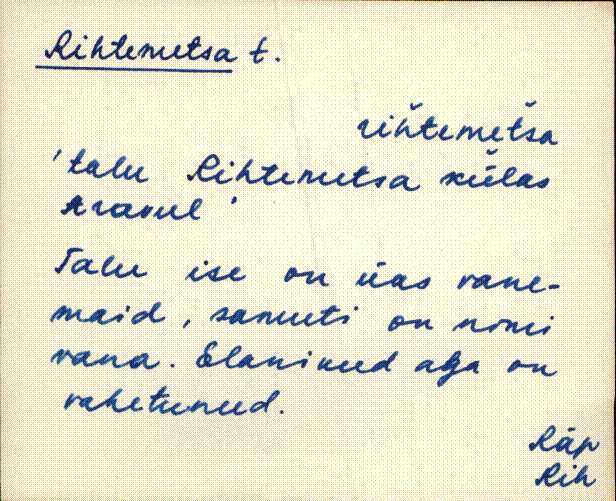 Rihtemetsa t.
rihtemetsa
'talu Rihtemetsa külas
Aravul'
Talu ise on üas vane-
maid, samuti on nimi
vana. Elanikud aga on
vahetunud.
Räp
Rih